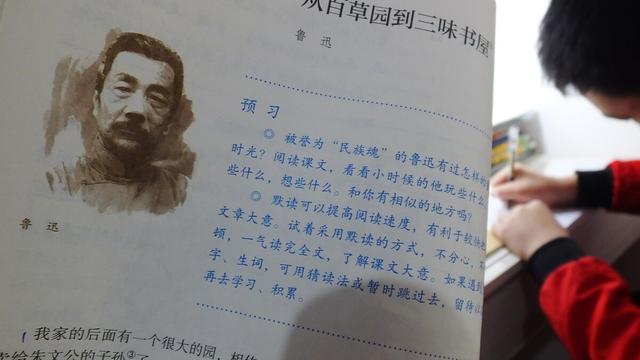 从百草园到三味书屋
鲁 迅
预 习
◎ 被誉为“民族魂”的鲁迅有过怎样的
时光？阅读课文，看看小时候的他玩些什么，
些什么，想些什么。和你有相似的地方吗？
◎ 默读可以提高阅读速度，有利于较快
文章大意。试着采用默读的方式，不分心，不
顿，一气读完全文，了解课文大意。如果遇到
字、生词，可用猜读法或暂时跳过去，留待以
再去学习、积累。
鲁 迅
我家的后面有一个很大的园，相传
卖给朱文公的子孙③了